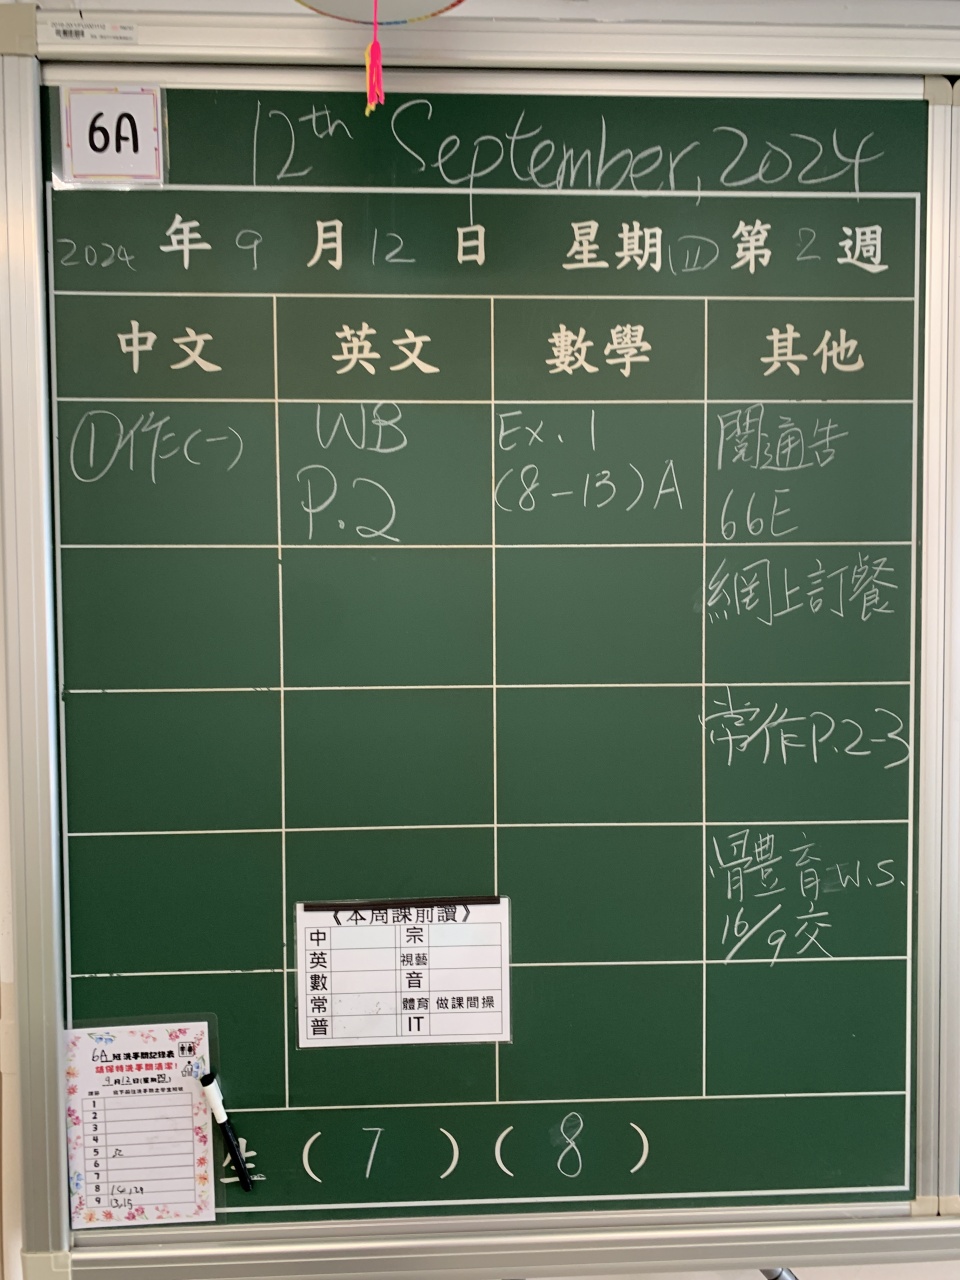 6A
12th September, 2024
2024 年 9 月 12 日 星期(四) 第 2 週
中文 英文 數學 其他
①作=(一)
WB
P.2
Ex. 1
(8-13)A
閱通告
66E
網上訂餐
常作P.2-3
體育 W.S.
16/9交
《本周課前讀》
中 宗
英 視藝
數 音
常 體育 做課間操
普 IT
6A 班洗手間記錄表
請保持洗手間清潔!
9月12日(星期四)
1
2
3
4
5
6
7
8 14,29
9 13,15
生 ( 7 ) ( 8 )